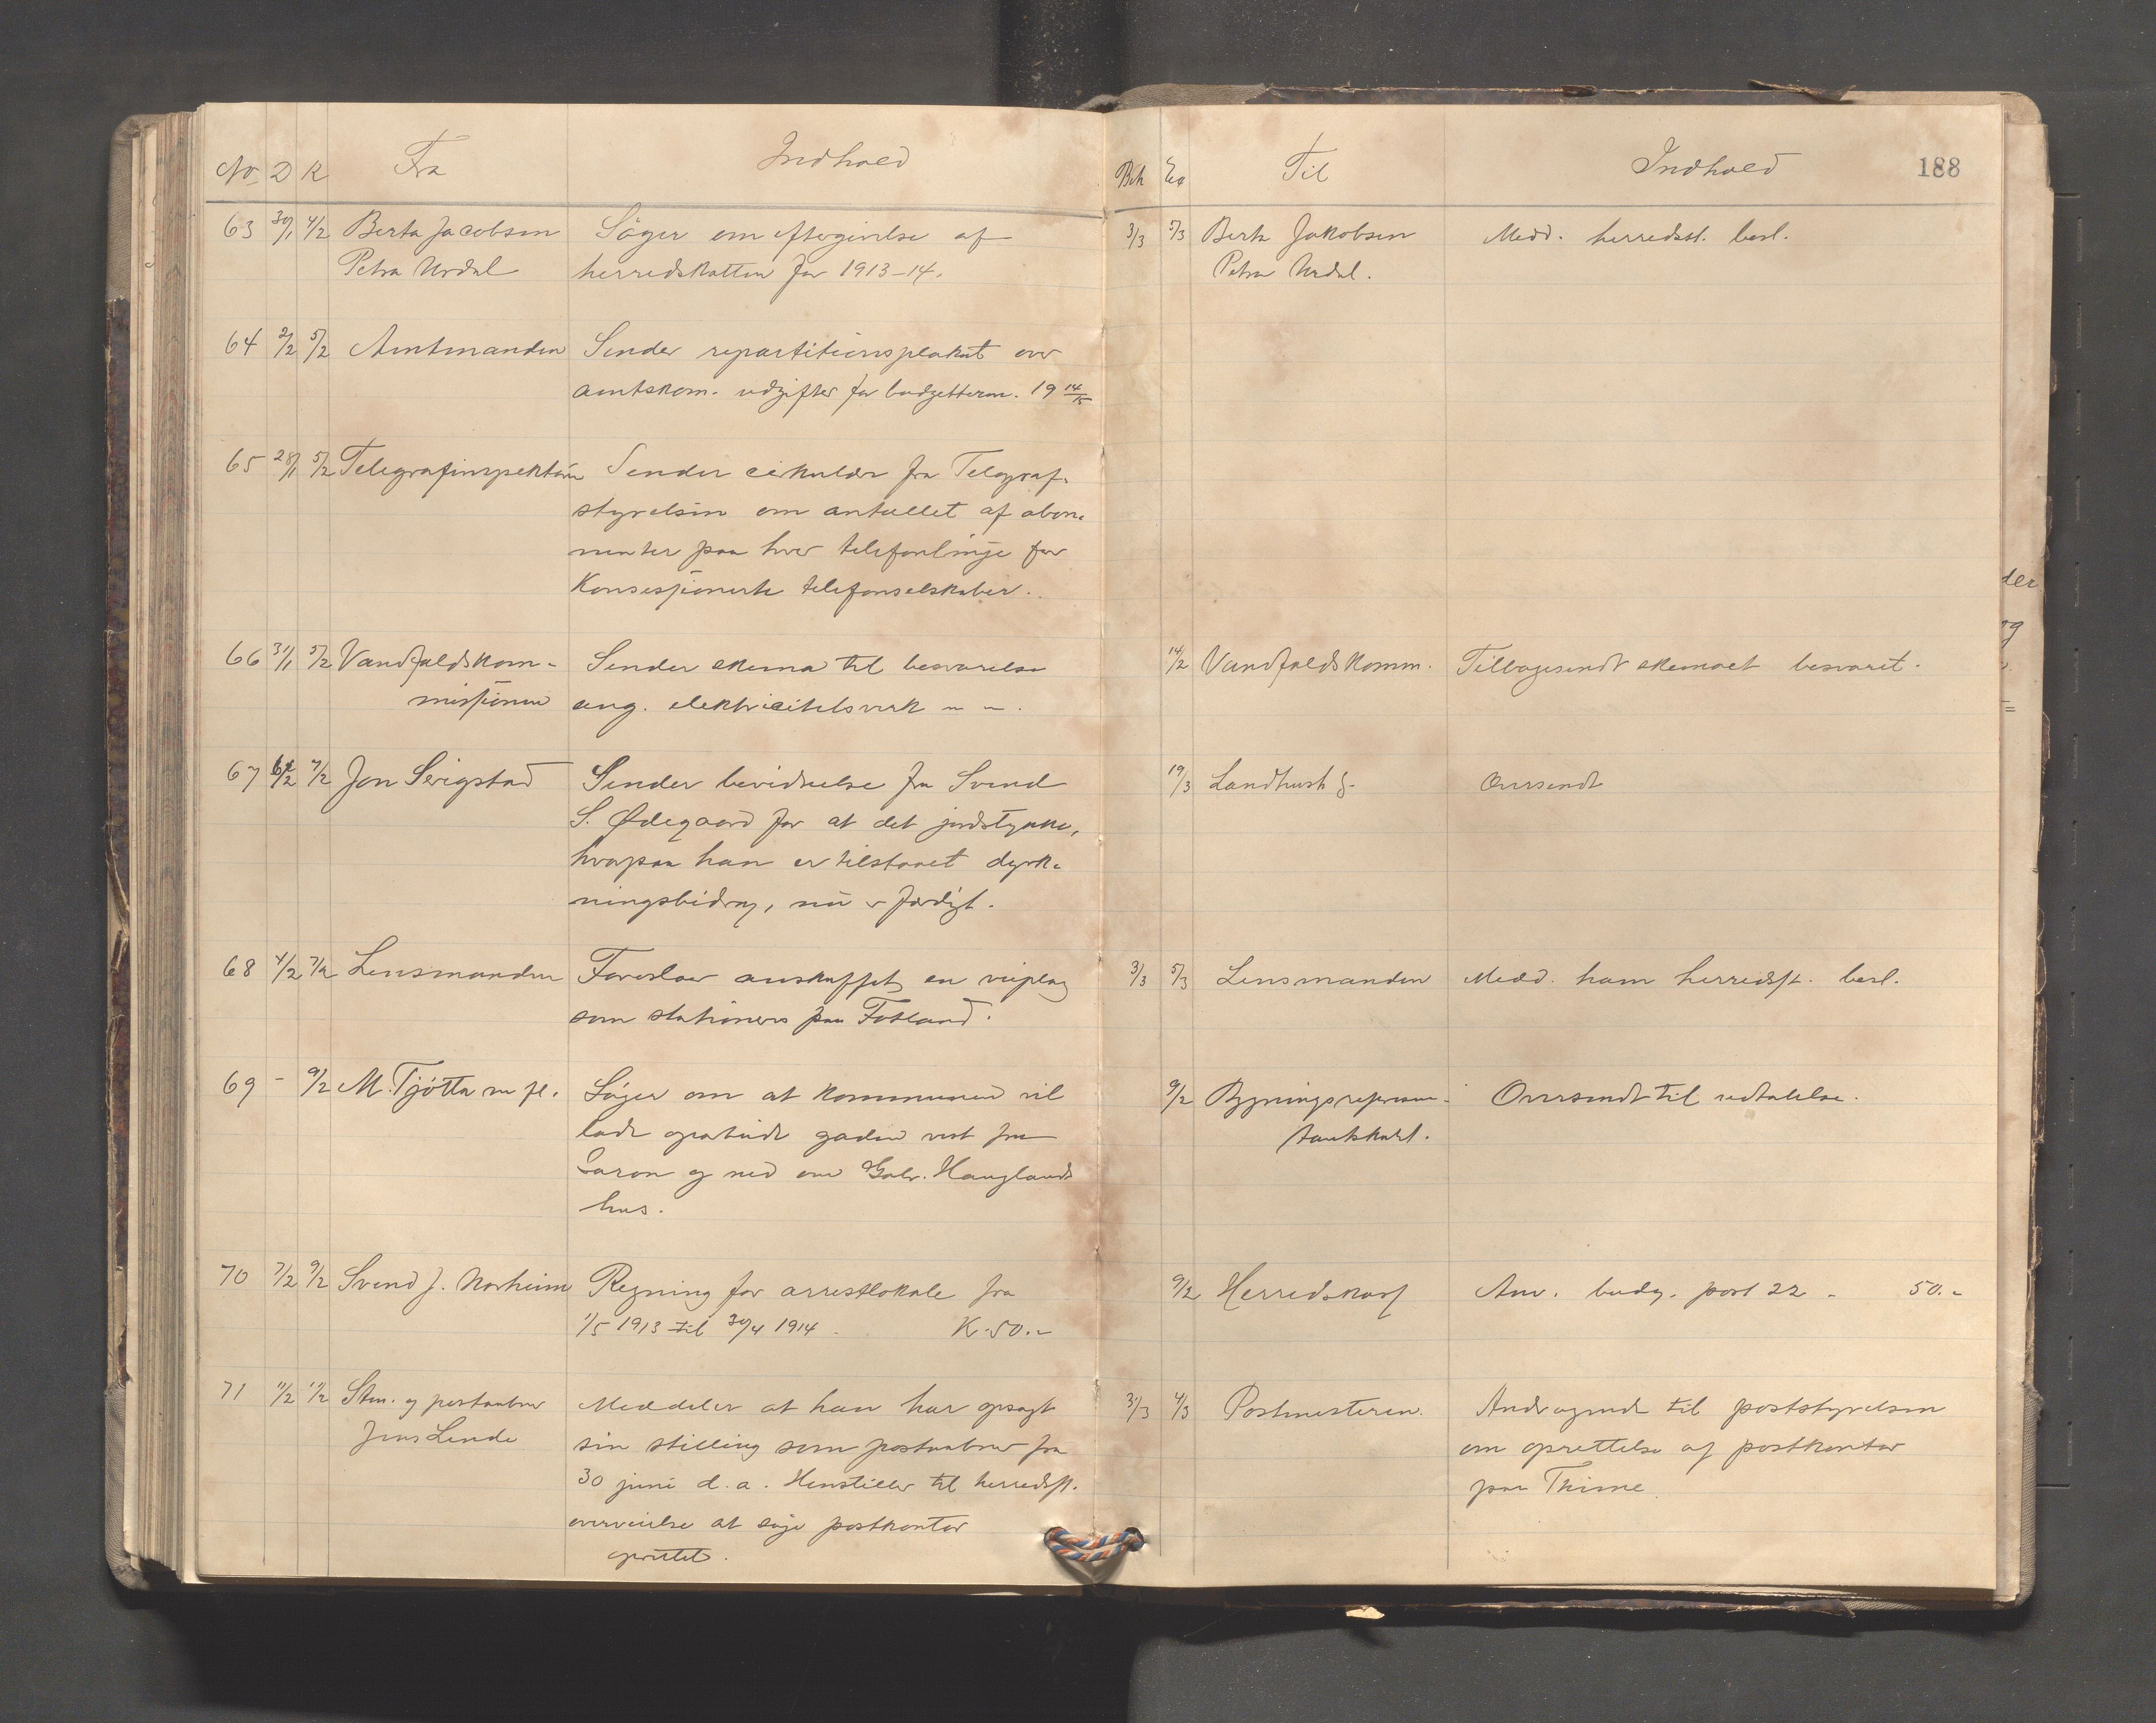 No D R Fra Indhold
63 30/1 4/2 Berta Jacobsen Söger om eftergivelse af
Petra Urdal herredskatten for 1913-14.
64 2/2 5/2 Amtmanden Sender repartitionsplakat over
amtskom. udgifter for budgetterm. 19 14/15
65 28/1 5/2 Telegrafinspektören Sender cirkulær fra Telegraf-
styrelsen om antallet af abon-
nenter paa hver telefonlinje for
Konsesjonerte telefonselskaber.
66 31/1 5/2 Vandfaldskom- Sender skema til besvarelse
missionen ang. elektricitetsverk
67 6/2 7/2 Jon Serigstad Sender bevidnelse fra Svend
S. Ødegaard for at det jordstykke,
hvorpaa han er tilstaaet dyrk-
ningsbidrag, nu er færdigt.
68 4/2 7/2 Lensmanden Foreslaar anskaffet en veiplog
som stationeres paa Fotland.
69 - 9/2 M. Tjötta m fl. Söger om at kommunen vil
lade oparbeide gaden vest fra
Saron og ned om Gabr. Hauglands
hus.
70 7/2 9/2 Svend J. Norheim Regning for arrestlokale fra
1/5 1913 til 30/4 1914. K. 50.-
71 11/2 11/2 Stm. og postaabner Meddeler at han har opsagt
Jens Lende sin stilling som postaabner fra
30 juni d.a. Henstiller til herredsst.
overveielse at søge postkontor
oprettet.
Beh Ex Til Indhold 188
3/3 5/3 Berta Jakobsen Medd. herredsst. besl.
Petra Urdal.
14/2 Vandfaldskomm. Tilbagesendt skemaet besvaret.
19/3 Landhush S. Oversendt
3/3 5/3 Lensmanden Medd. ham herredsst. besl.
9/2 Bygningsrepræsen- Oversendt til udtalelse.
tantskabet.
9/2 Herredskass Anv. budg. post 22 - 50.-
3/3 4/3 Postmesteren. Andragende til poststyrelsen
om oprettelse af postkontor
paa Thime